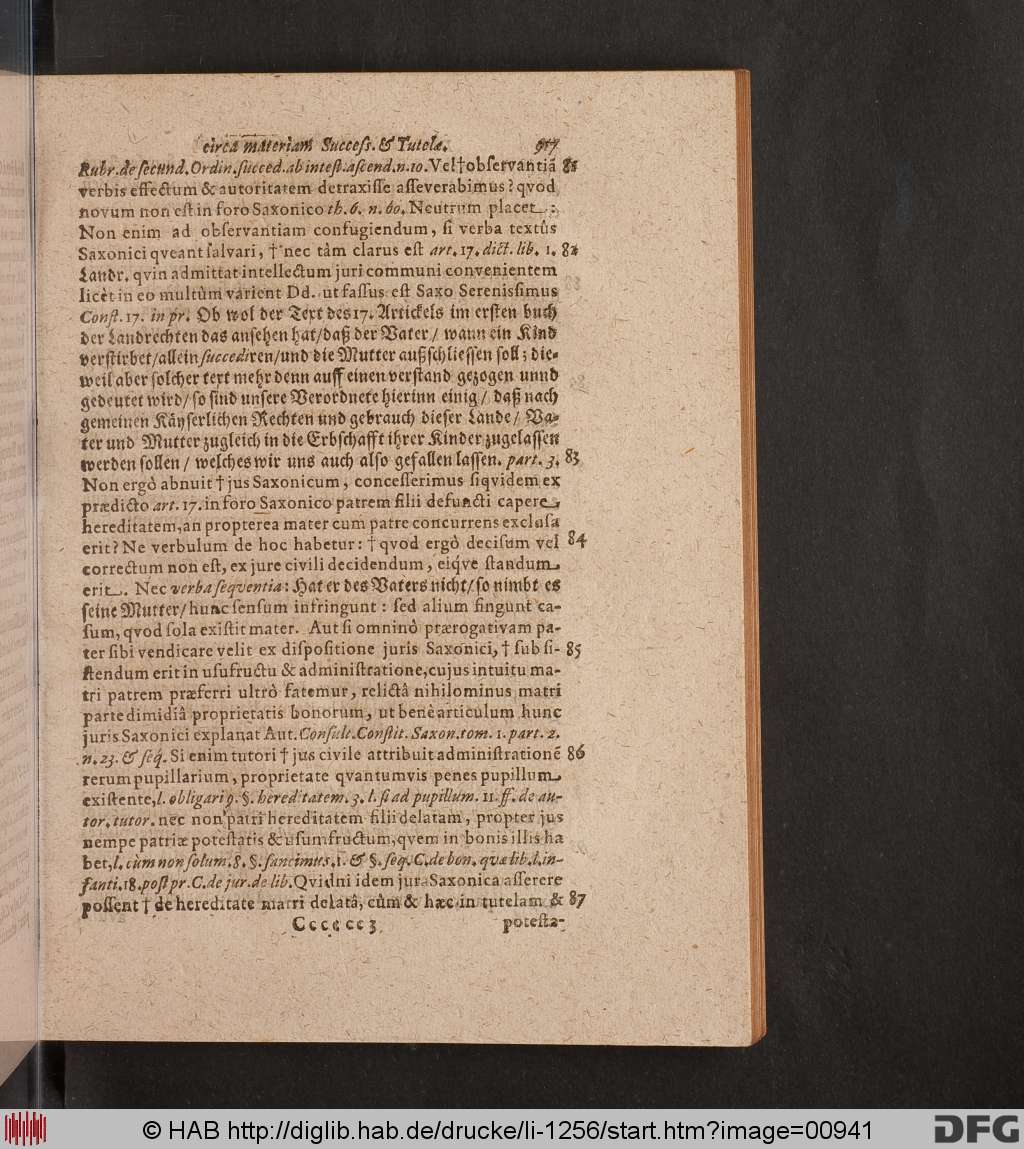 circa materiam Succeſs. & Tutelæ. 917
Rubr. de ſecund. Ordin. ſucced. ab inteſt. aſcend. n. 10. Vel † obſervantiã 81
verbis effectum & autoritatem detraxiſſe aſſeverabimus? qvod
novum non eſt in foro Saxonico th. 6. n. 60. Neutrum placet:
Non enim ad obſervantiam confugiendum, ſi verba textûs
Saxonici qveant ſalvari, † nec tàm clarus eſt art. 17. dict. lib. 1. 82
Landr. qvin admittat intellectum juri communi convenientem
licèt in eo multùm varient Dd. ut faſſus eſt Saxo Sereniſſimus
Conſt. 17. in pr. Ob wol der Text des 17. Artickels im erſten buch
der Landrechten das anſehen hat/ daß der Vater/ wann ein Kind
verſtirbet/ allein ſuccediren/ und die Mutter außſchlieſſen ſoll; die-
weil aber ſolcher text mehr denn auff einen verſtand gezogen unnd
gedeutet wird/ ſo ſind unſere Verordnete hierinn einig/ daß nach
gemeinen Käyſerlichen Rechten und gebrauch dieſer Lande/ Va-
ter und Mutter zugleich in die Erbſchafft ihrer Kinder zugelaſſen
werden ſollen/ welches wir uns auch alſo gefallen laſſen. part. 3. 83
Non ergò abnuit † jus Saxonicum, conceſſerimus ſiqvidem ex
prædicto art. 17. in foro Saxonico patrem filii defuncti capere
hereditatem, an propterea mater cum patre concurrens excluſa
erit? Ne verbulum de hoc habetur: † qvod ergò deciſum vel 84
correctum non eſt, ex jure civili decidendum, eiq́ve ſtandum
erit. Nec verba ſeqventia: Hat er des Vaters nicht/ ſo nimbt es
ſeine Mutter/ hunc ſenſum infringunt: ſed alium fingunt ca-
ſum, qvod ſola exiſtit mater. Aut ſi omninò prærogativam pa-
ter ſibi vendicare velit ex diſpoſitione juris Saxonici, † ſubſi- 85
ſtendum erit in uſufructu & adminiſtratione, cujus intuitu ma-
tri patrem præferri ultrò fatemur, relictâ nihilominus matri
parte dimidiâ proprietatis bonorum, ut benè articulum hunc
juris Saxonici explanat Aut. Conſult. Conſtit. Saxon. tom. 1. part. 2.
n. 23. & ſeq́. Si enim tutori † jus civile attribuit adminiſtrationẽ 86
rerum pupillarium, proprietate qvantumvis penes pupillum
exiſtente, l. obligari 9. §. hereditatem. 3. l. ſi ad pupillum. 11. ff. de au-
tor. tutor. nec non patri hereditatem filii delatam, propter jus
nempe patriæ poteſtatis & uſumfructum, qvem in bonis illis ha
bet, l. cùm non ſolum. 8. §. ſancimus. 1. & §. ſeq. C. de bon. quæ lib. l. in-
fanti. 18. poſt pr. C. de jur. de lib. Qvidni idem jura Saxonica aſſerere
poſſent † de hereditate matri delatâ, cùm & hæc in tutelam & 87
Cccccc 3 poteſta-
© HAB http://diglib.hab.de/drucke/li-1256/start.htm?image=00941
DFG